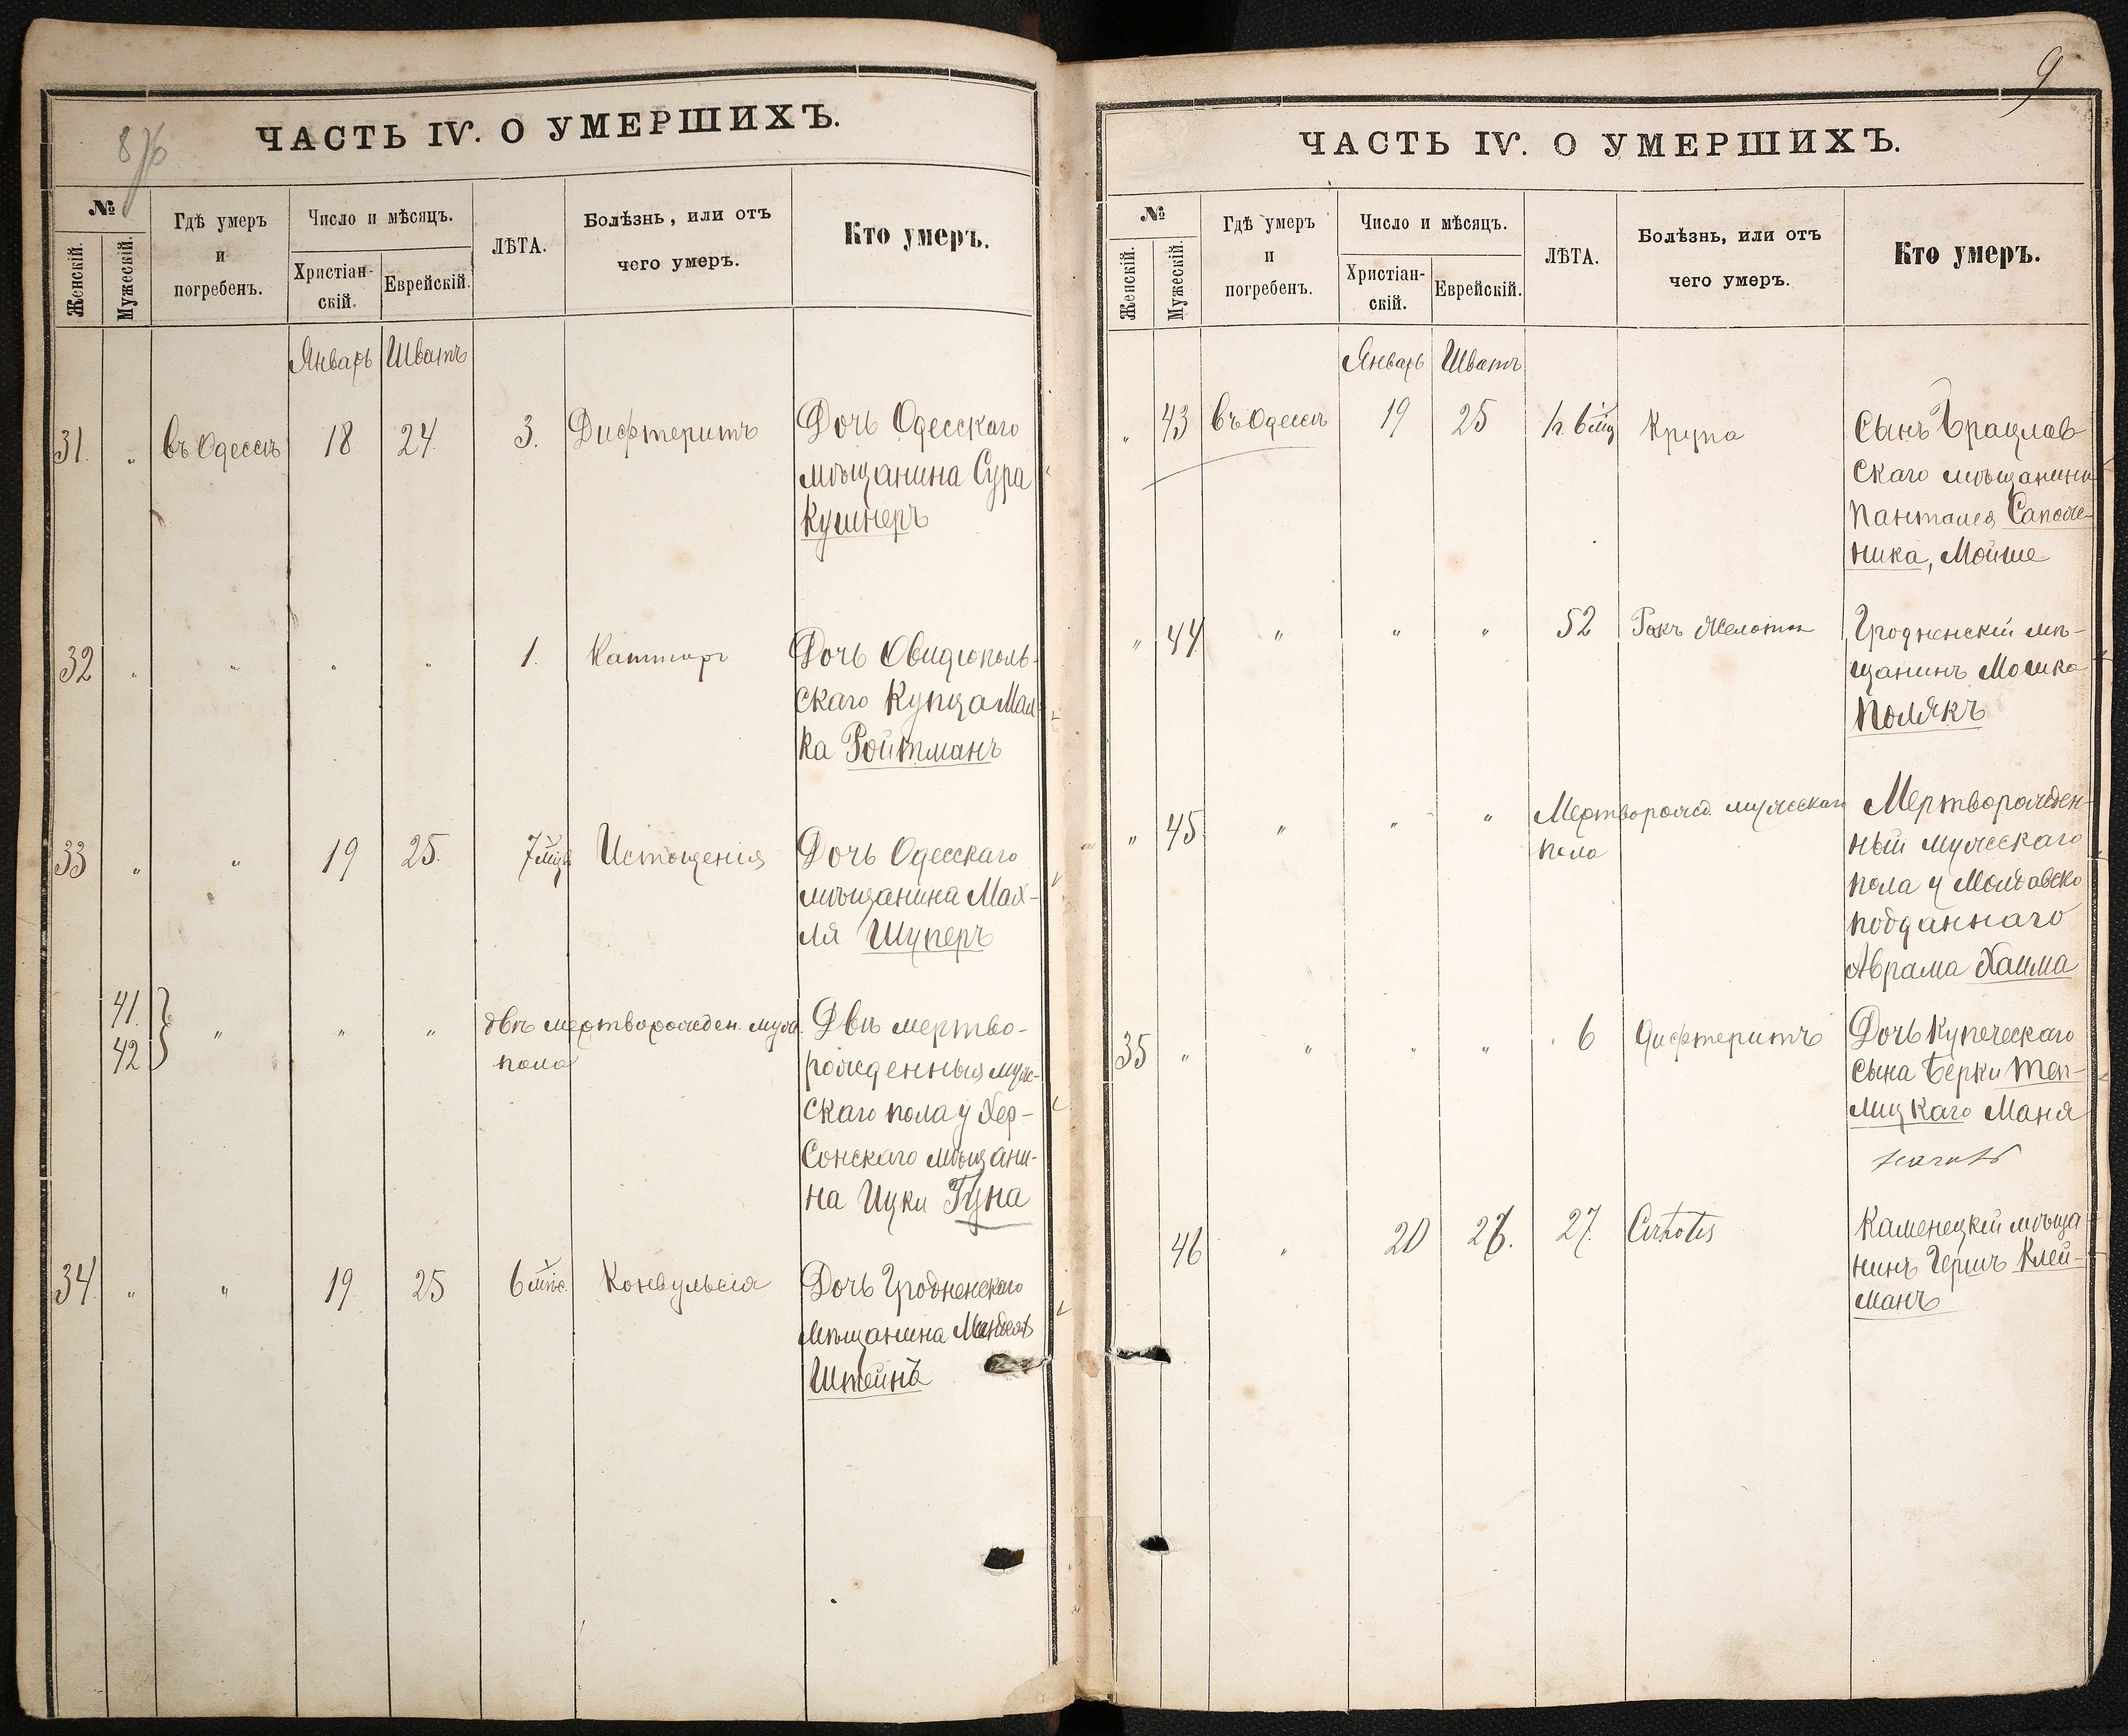 876
ЧАСТЬ IV. О УМЕРШИХЪ.
№
Женскій.
Мужескій.
Гдѣ умеръ
и
погребенъ.
Число и мѣсяцъ.
Христіан-
скій.
Еврейскій.
ЛѢТА.
Болѣзнь, или отъ
чего умеръ.
Кто умеръ.
Январь Шватъ
31. " въ Одессѣ 18 24 3. Дифтеритъ Дочь Одесскаго
мѣщанина Сура
Кушнеръ
32 " " " " 1. Дочь Овидіополь-
скаго Купца Мал-
ка Ройтманъ
33 " " 19 25. 7 мцв Истощенія Дочь Одесскаго
мѣщанина Мах-
ля Шуперъ
41.
42 " " " двѣ мертворожден. муж.
пола
Двѣ мертво-
рожденныя муж-
скаго пола у Хер-
сонскаго мѣщани-
на Ицки Гуна
34. " " 19. 25 6 мѣс. Конвульсія Дочь Гродненскаго
Мѣщанина
Штейнъ
9
ЧАСТЬ IV. О УМЕРШИХЪ.
№
Женскій.
Мужескій.
Гдѣ умеръ
и
погребенъ.
Число и мѣсяцъ.
Христіан-
скій.
Еврейскій.
ЛѢТА.
Болѣзнь, или отъ
чего умеръ.
Кто умеръ.
Январь Шватъ
" 43 въ Одессѣ 19 25 Крупа Сынъ Брацлав-
скаго мѣщанина
Пантелея Сапож-
ника, Мойше
" 44 " " " 52 Ракъ Желотка Гродненскій мѣ-
щанинъ Мошка
Полякъ
" 45 " " " Мертворожд. мужескаго
пола
Мертворожден-
ный мужескаго
пола у Молдавско
подданнаго
Аврама Хаима
35 " " " " 6 Дифтеритъ Дочь Купеческаго
сына Берки Теп-
лицкаго Маня
46 " 20 26. 27. Cirhotis Каменецкій мѣща
нинъ Гершъ Клей-
манъ